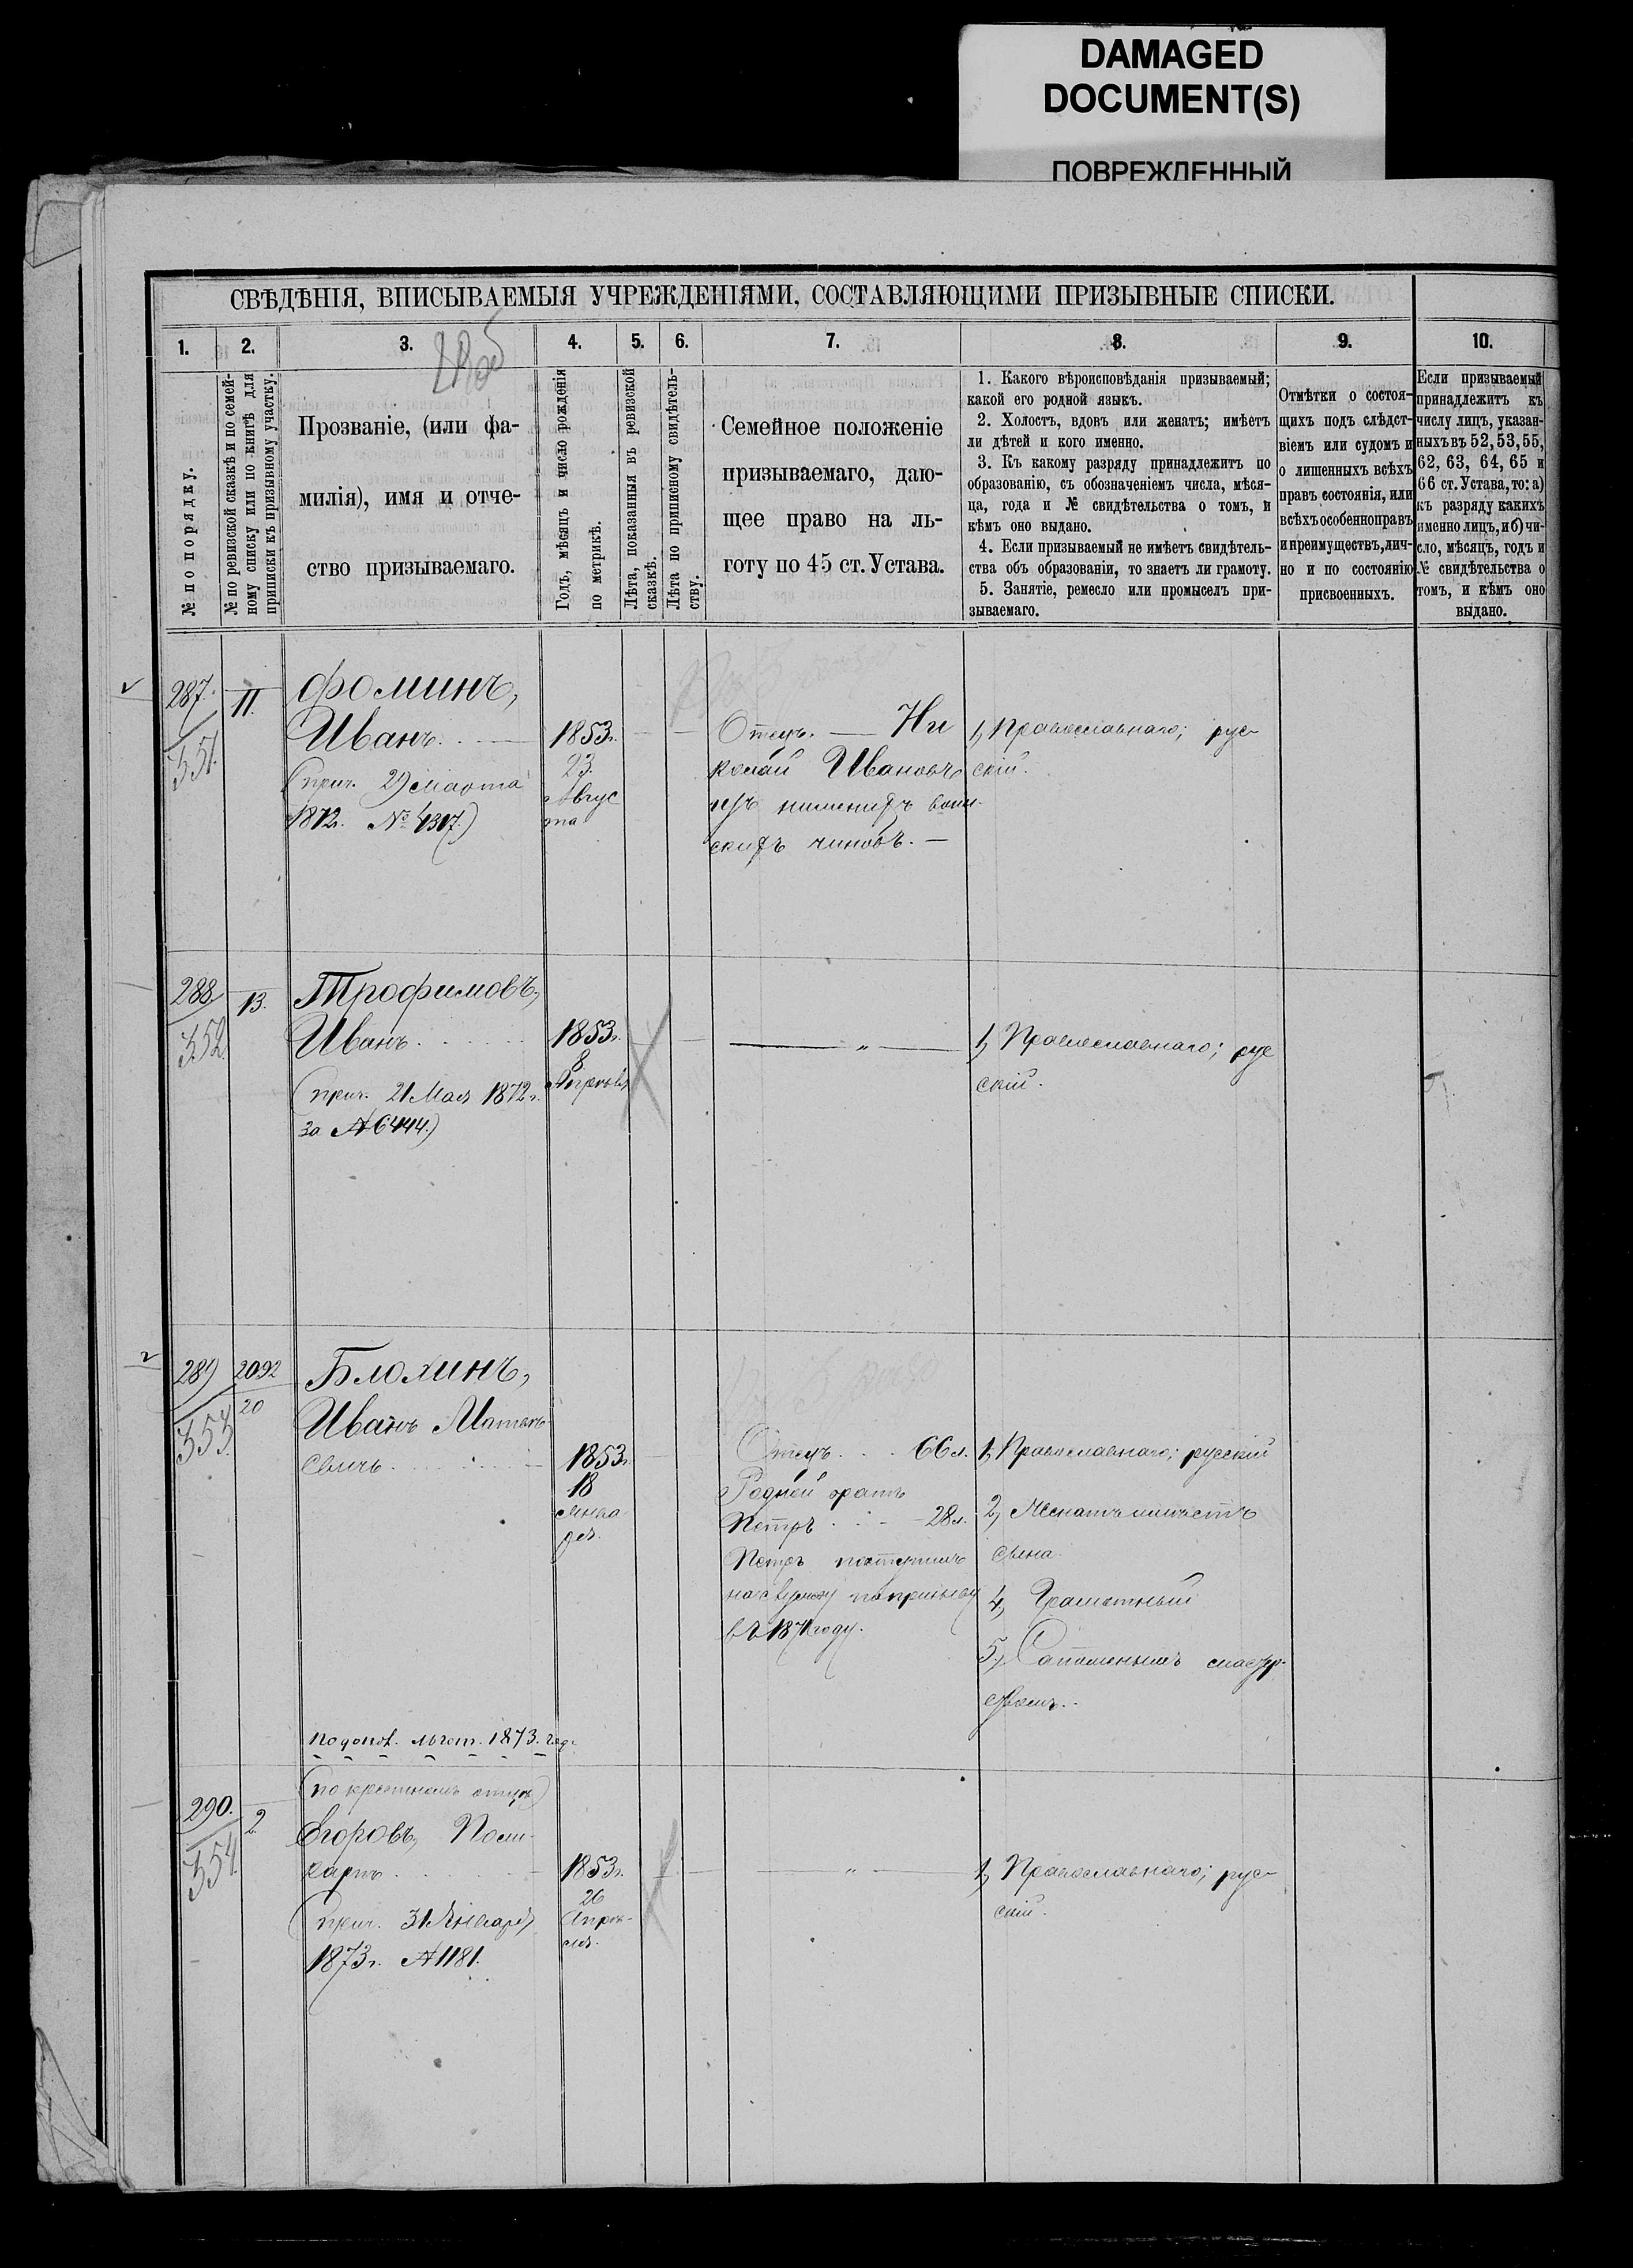 DAMAGED
DOCUMENT(S)
ПОВРЕЖДЕННЫЙ
СВѢДѢНІЯ, ВПИСЫВАЕМЫЯ УЧРЕЖДЕНІЯМИ, СОСТАВЛЯЮЩИМИ ПРИЗЫВНЫЕ СПИСКИ.
1. 2. 3. 4. 5. 6. 7. 8. 9. 10.
№ по порядку.
№ по ревизской сказкѣ и по семей-
ному списку или по книгѣ для
приписки къ призывному участку.
Прозваніе, (или фа-
милія), имя и отче-
ство призываемаго.
Годъ, мѣсяцъ и число рожденія
по метрикѣ.
Лѣта, показанныя въ ревизской
сказкѣ.
Лѣта по приписному свидѣтель-
ству.
Семейное положеніе
призываемаго, даю-
щее право на ль-
готу по 45 ст. Устава.
1. Какого вѣроисповѣданія призываемый;
какой его родной языкъ.
2. Холостъ, вдовъ или женатъ; имѣетъ
ли дѣтей и кого именно.
3. Къ какому разряду принадлежитъ по
образованію, съ обозначеніемъ числа, мѣся-
ца, года и № свидѣтельства о томъ, и
кѣмъ оно выдано.
4. Если призываемый не имѣетъ свидѣтель-
ства объ образованіи, то знаетъ ли грамоту.
5. Занятіе, ремесло или промыселъ при-
зываемаго.
Отмѣтки о состоя-
щихъ подъ слѣдст-
віемъ или судомъ и
о лишенныхъ всѣхъ
правъ состоянія, или
всѣхъ особенно правъ
и преимуществъ, лич-
но и по состоянію
присвоенныхъ.
Если призываемый
принадлежитъ къ
числу лицъ, указан-
ныхъ въ 52, 53, 55,
62, 63, 64, 65 и
66 ст. Устава, то: а)
къ разряду какихъ
именно лицъ, и б) чи-
сло, мѣсяцъ, годъ и
№ свидѣтельства о
томъ, и кѣмъ оно
выдано.
287.
351.
11.
Фоминъ,
Иванъ.
(прич. 29 Марта
1872г. № 4317.)
1853г.
23
Авгус
та
Отецъ. — Ни
колай Ивановъ
изъ нижнихъ воин-
скихъ чиновъ. —
1, Православнаго; рус-
скій.
288
352
13.
Трофимовъ,
Иванъ
(прич. 21 Мая 1872г.
за № 6444.)
1853г.
8
Апрѣля
— „ —
1, Православнаго; рус
скій.
289
353.
2092
20
Блохинъ,
Иванъ Матвѣе
евичъ
1853г.
18
Янва
ря.
Отецъ 66 л.
Родной братъ
Петръ 28 л.
Петръ поступилъ
на службу по призыву
въ 1871 году.
1, Православнаго; русскій
2, Женатъ имѣетъ
сына.
4, Грамотный
5, Сапожнымъ мастер-
ствомъ.
1873. год.
(по крестномъ отцѣ)
290.
354.
2
Егоровъ, Поли-
карпъ
(прич. 31 Января
1873г. № 1181.
1853г.
26
Апрѣ-
ля.
— „ —
1, Православнаго; рус-
скій.